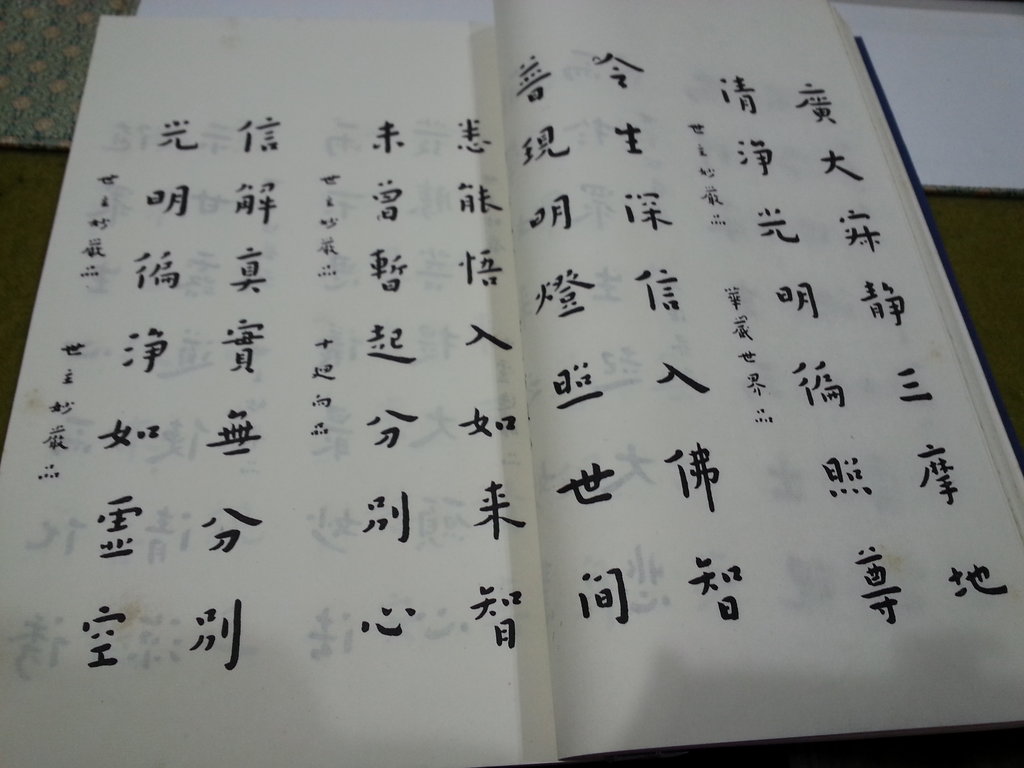 廣大寂静三摩地
清淨光明徧照尊
世主妙嚴品
華藏世界品
令生深信入佛智
普現明燈照世间
悉能悟入如来智
未曾暫起分別心
世主妙嚴品
十迴向品
信解真實無分別
光明徧淨如虛空
世主妙嚴品
世主妙嚴品